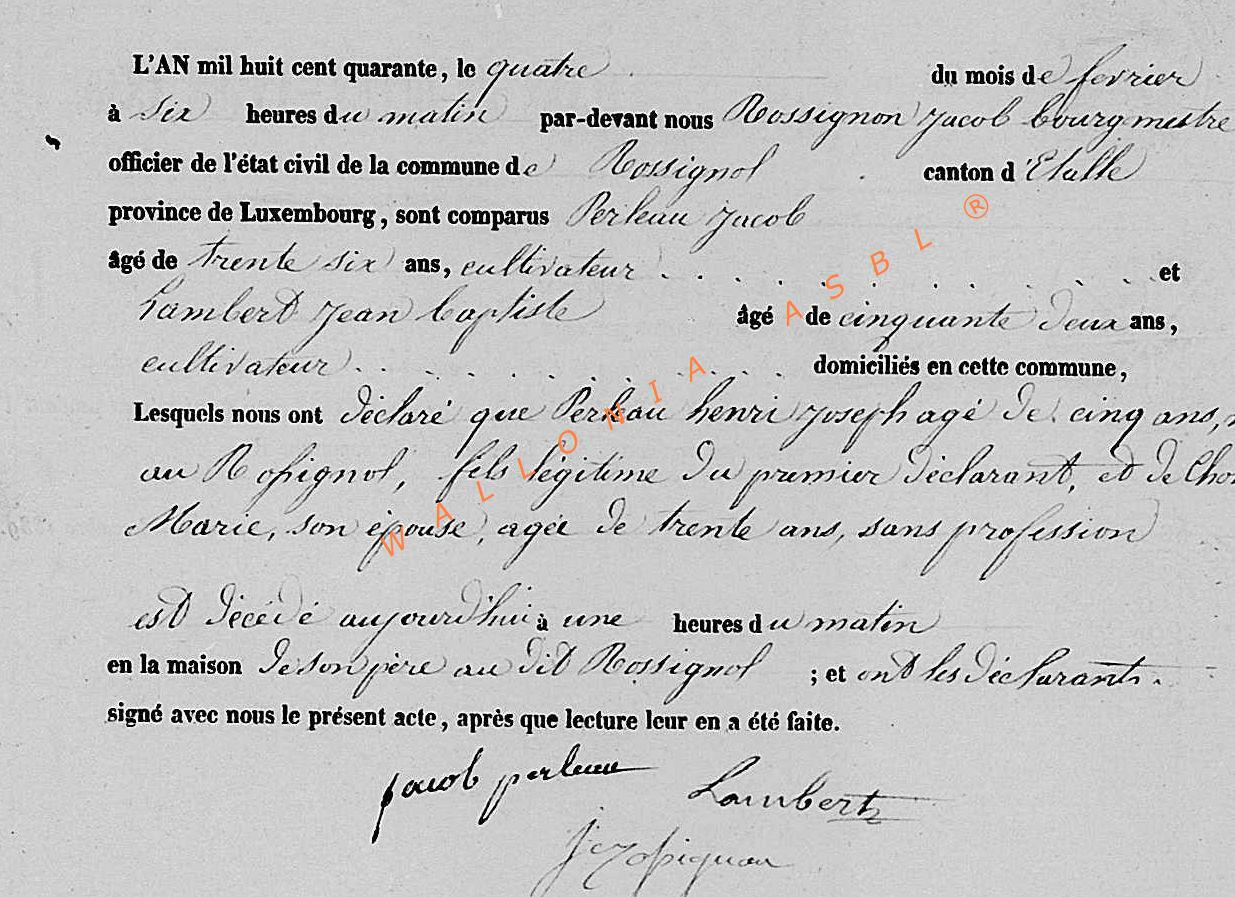 L'AN mil huit cent quarante, le quatre du mois de fevrier
à six heures du matin par-devant nous Rossignon Jacob bourgmestre
officier de l'état civil de la commune de Rossignol canton d'Etalle
province de Luxembourg, sont comparus Perleau Jacob
âgé de trente six ans, cultivateur et
Lambert Jean baptiste âgé de cinquante deux ans,
cultivateur domiciliés en cette commune,
Lesquels nous ont déclaré que Perleau henri Joseph agé de cinq ans,
au Rossignol, fils légitime du premier déclarant, et de
Marie, son épouse, agée de trente ans, sans profession
est décédé aujourd'hui à une heures du matin
en la maison de son père au dit Rossignol ; et ont les déclarants
signé avec nous le présent acte, après que lecture leur en a été faite.
jacob perleau
Lambert
J Rossignon
WALLONIA ASBL ®